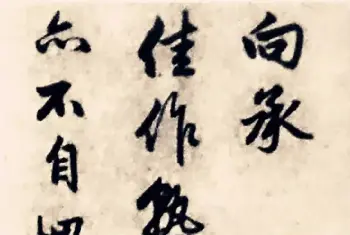 向承
佳作孰
亦不自